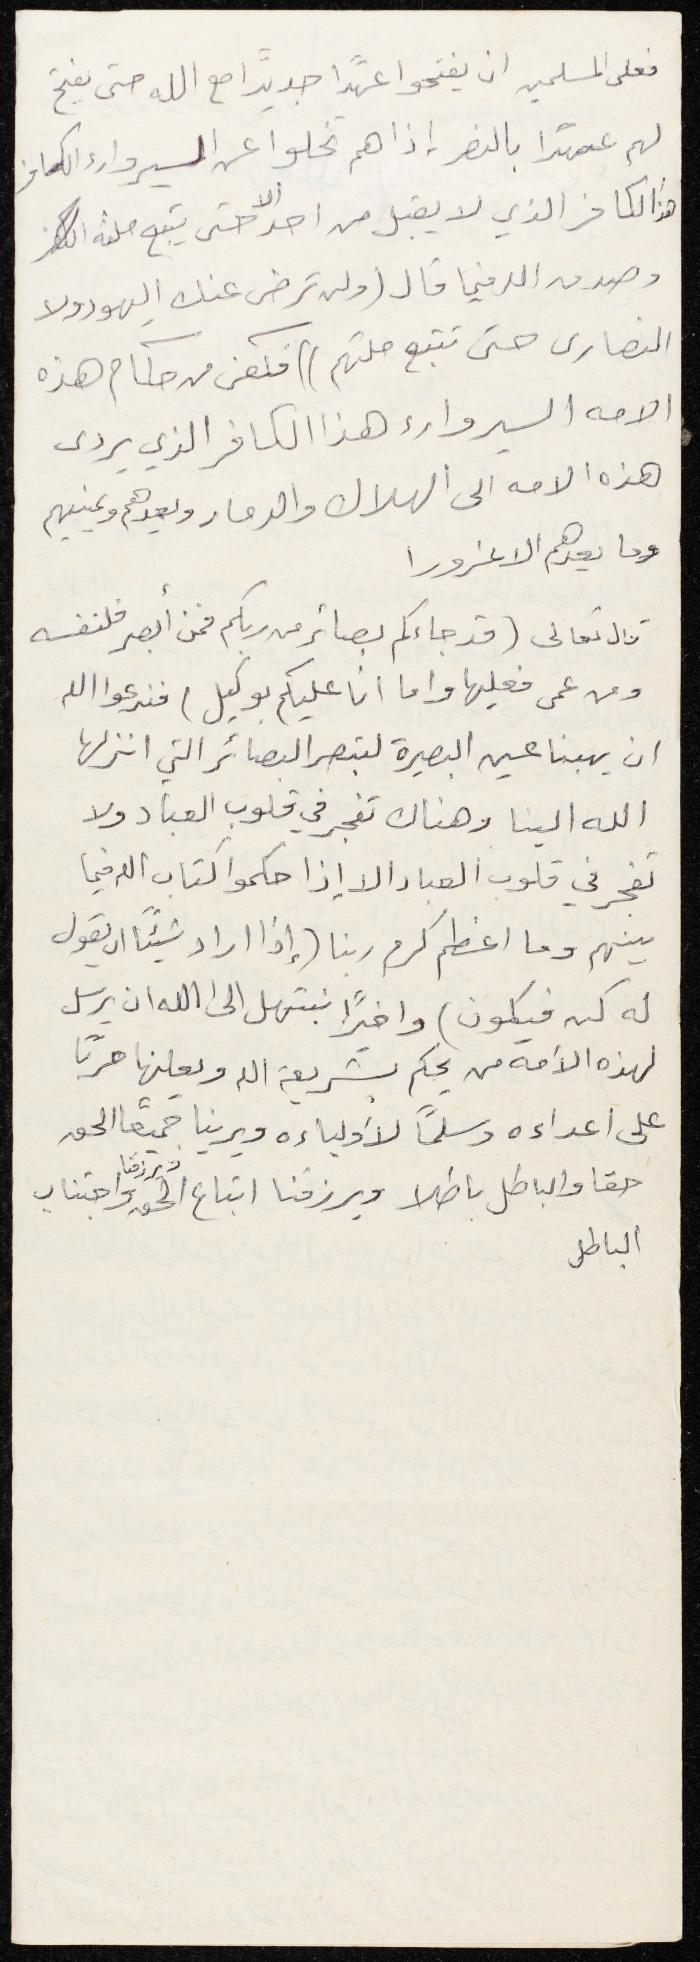 فعلى المسلمين ان يفتحوا عهدًا جديدًا مع الله حتى يفتح
لهم عهدًا بالنصر إذا هم تخلوا عن السير وراء الكافر
هذا الكافر الذي لا يقبل من احد الا حتى يتبع ملته الكفر
وصدق الله فيما قال (ولن ترضى عنك اليهود ولا
النصارى حتى تتبع ملتهم)) فكفى من حكام هذه
الامه السير وراء هذا الكافر الذي يردى
هذه الامه الى الهلاك والدمار ويعدهم ويمنيهم
وما يعدهم الا غرورا
قال تعالى (قد جاءكم بصائر من ربكم فمن أبصر فلنفسه
ومن عمى فعليها واما انا عليكم بوكيل) فندعوا الله
ان يهبنا عين البصيرة لبتصر البصائر التي انزلها
الله الينا وهناك تفجر في قلوب العباد ولا
تفجر في قلوب العباد الا إذا حكموا كتاب الله فيما
بينهم وما اعظم كرم ربنا (إذا اراد شيئًا ان يقول
له كن فيكون) واخيرًا نبتهل الى الله ان يرسل
لهذه الأمه من يحكم بشريعة الله ويعلنها حربًا
على اعداءه وسلمًا لأولياءه ويرينا جميعًا الحق
حقا والباطل باطلا ويرزقنا اتباع الحق ويرزقنا واجتناب
الباطل